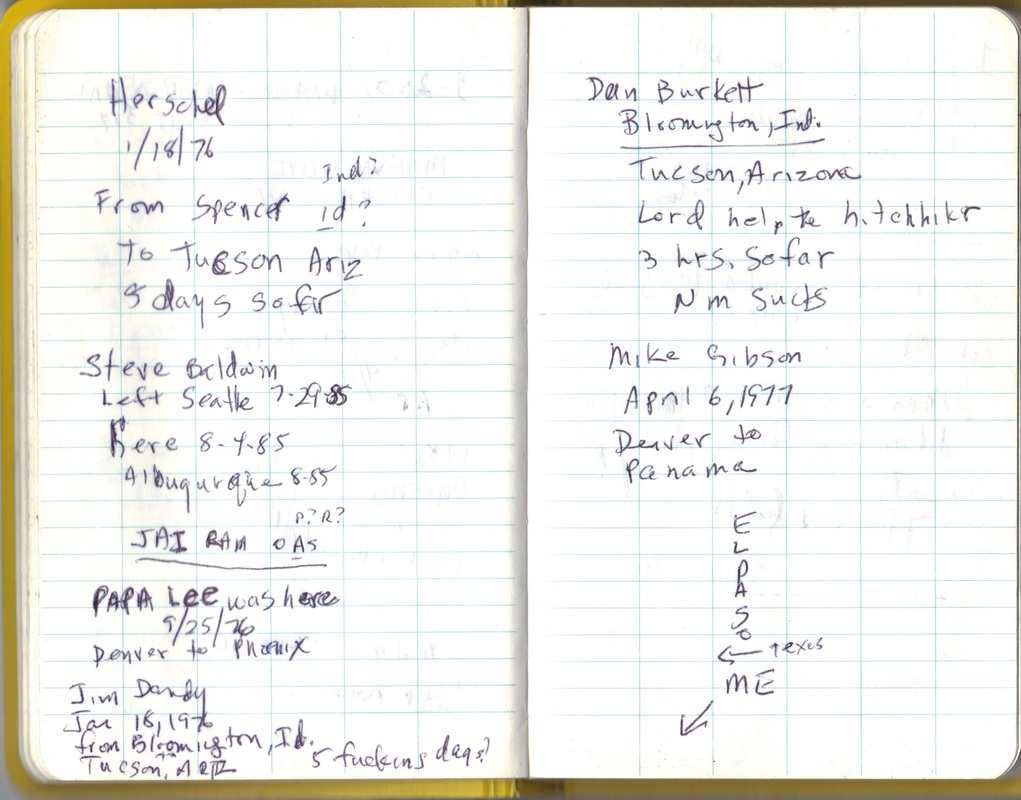 Herschel
1/18/76
Ind?
From Spencer id?
To Tucson Ariz
5 days so far
Steve Baldwin
Left Seatle 7-29-85
here 8-4-85
Albuqurque 8-85
P? R?
JAI RAM OAS
PAPA LEE was here
9/25/76
Denver to Phoenix
Jim Dandy
Jan 18, 1976
from Bloomington, Id.
Tucson, ARIZ
5 fucking days?
Dan Burkett
Bloomington, Ind.
Tucson, Arizona
Lord help the hitchhikr
3 hrs. so far
Nm Sucks
Mike Gibson
April 6, 1977
Denver to
Panama
E
L
P
A
S
O
← texes
ME